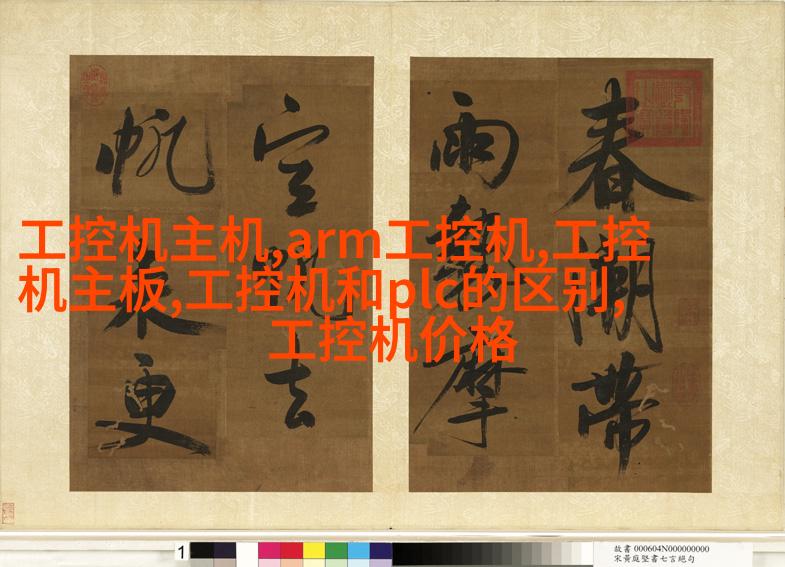 工控机主机,arm工控机,工控
机主板,工控机和plc的区别,
工控机价格
春潮帶
雨摩
空去
帆來更
1
故書 000604N000000000
宋黃庭堅書七言絕句